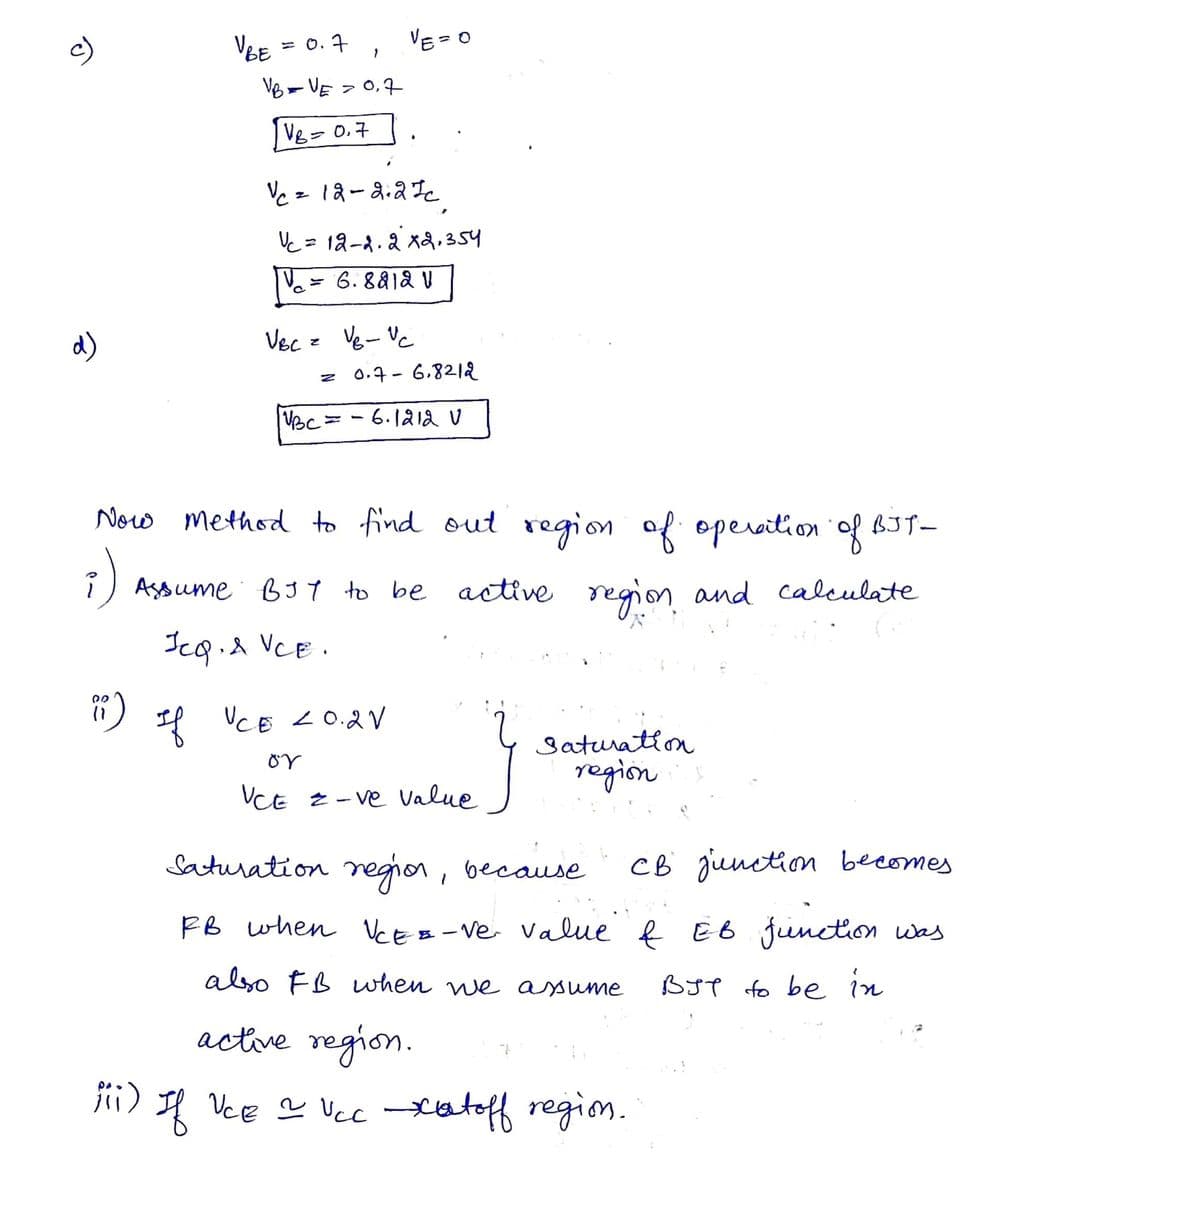 c) VBE = 0.7 , VE = 0
VB - VE = 0.7
VB = 0.7
VC = 12 - 2.2 IC
VC = 12 - 2.2 x 2.354
VC = 6.8212 V
d) VBC = VB - VC
= 0.7 - 6.8212
VBC = - 6.1212 V
Now method to find out region of operation of BJT-
i) Assume BJT to be active region and calculate
ICQ. & VCE.
ii) If VCE < 0.2V
or
VCE = -ve value } saturation region
Saturation region, because CB junction becomes
FB when VCE = -ve value & EB junction was
also FB when we assume BJT to be in
active region.
iii) If VCE ≃ VCC → cutoff region.